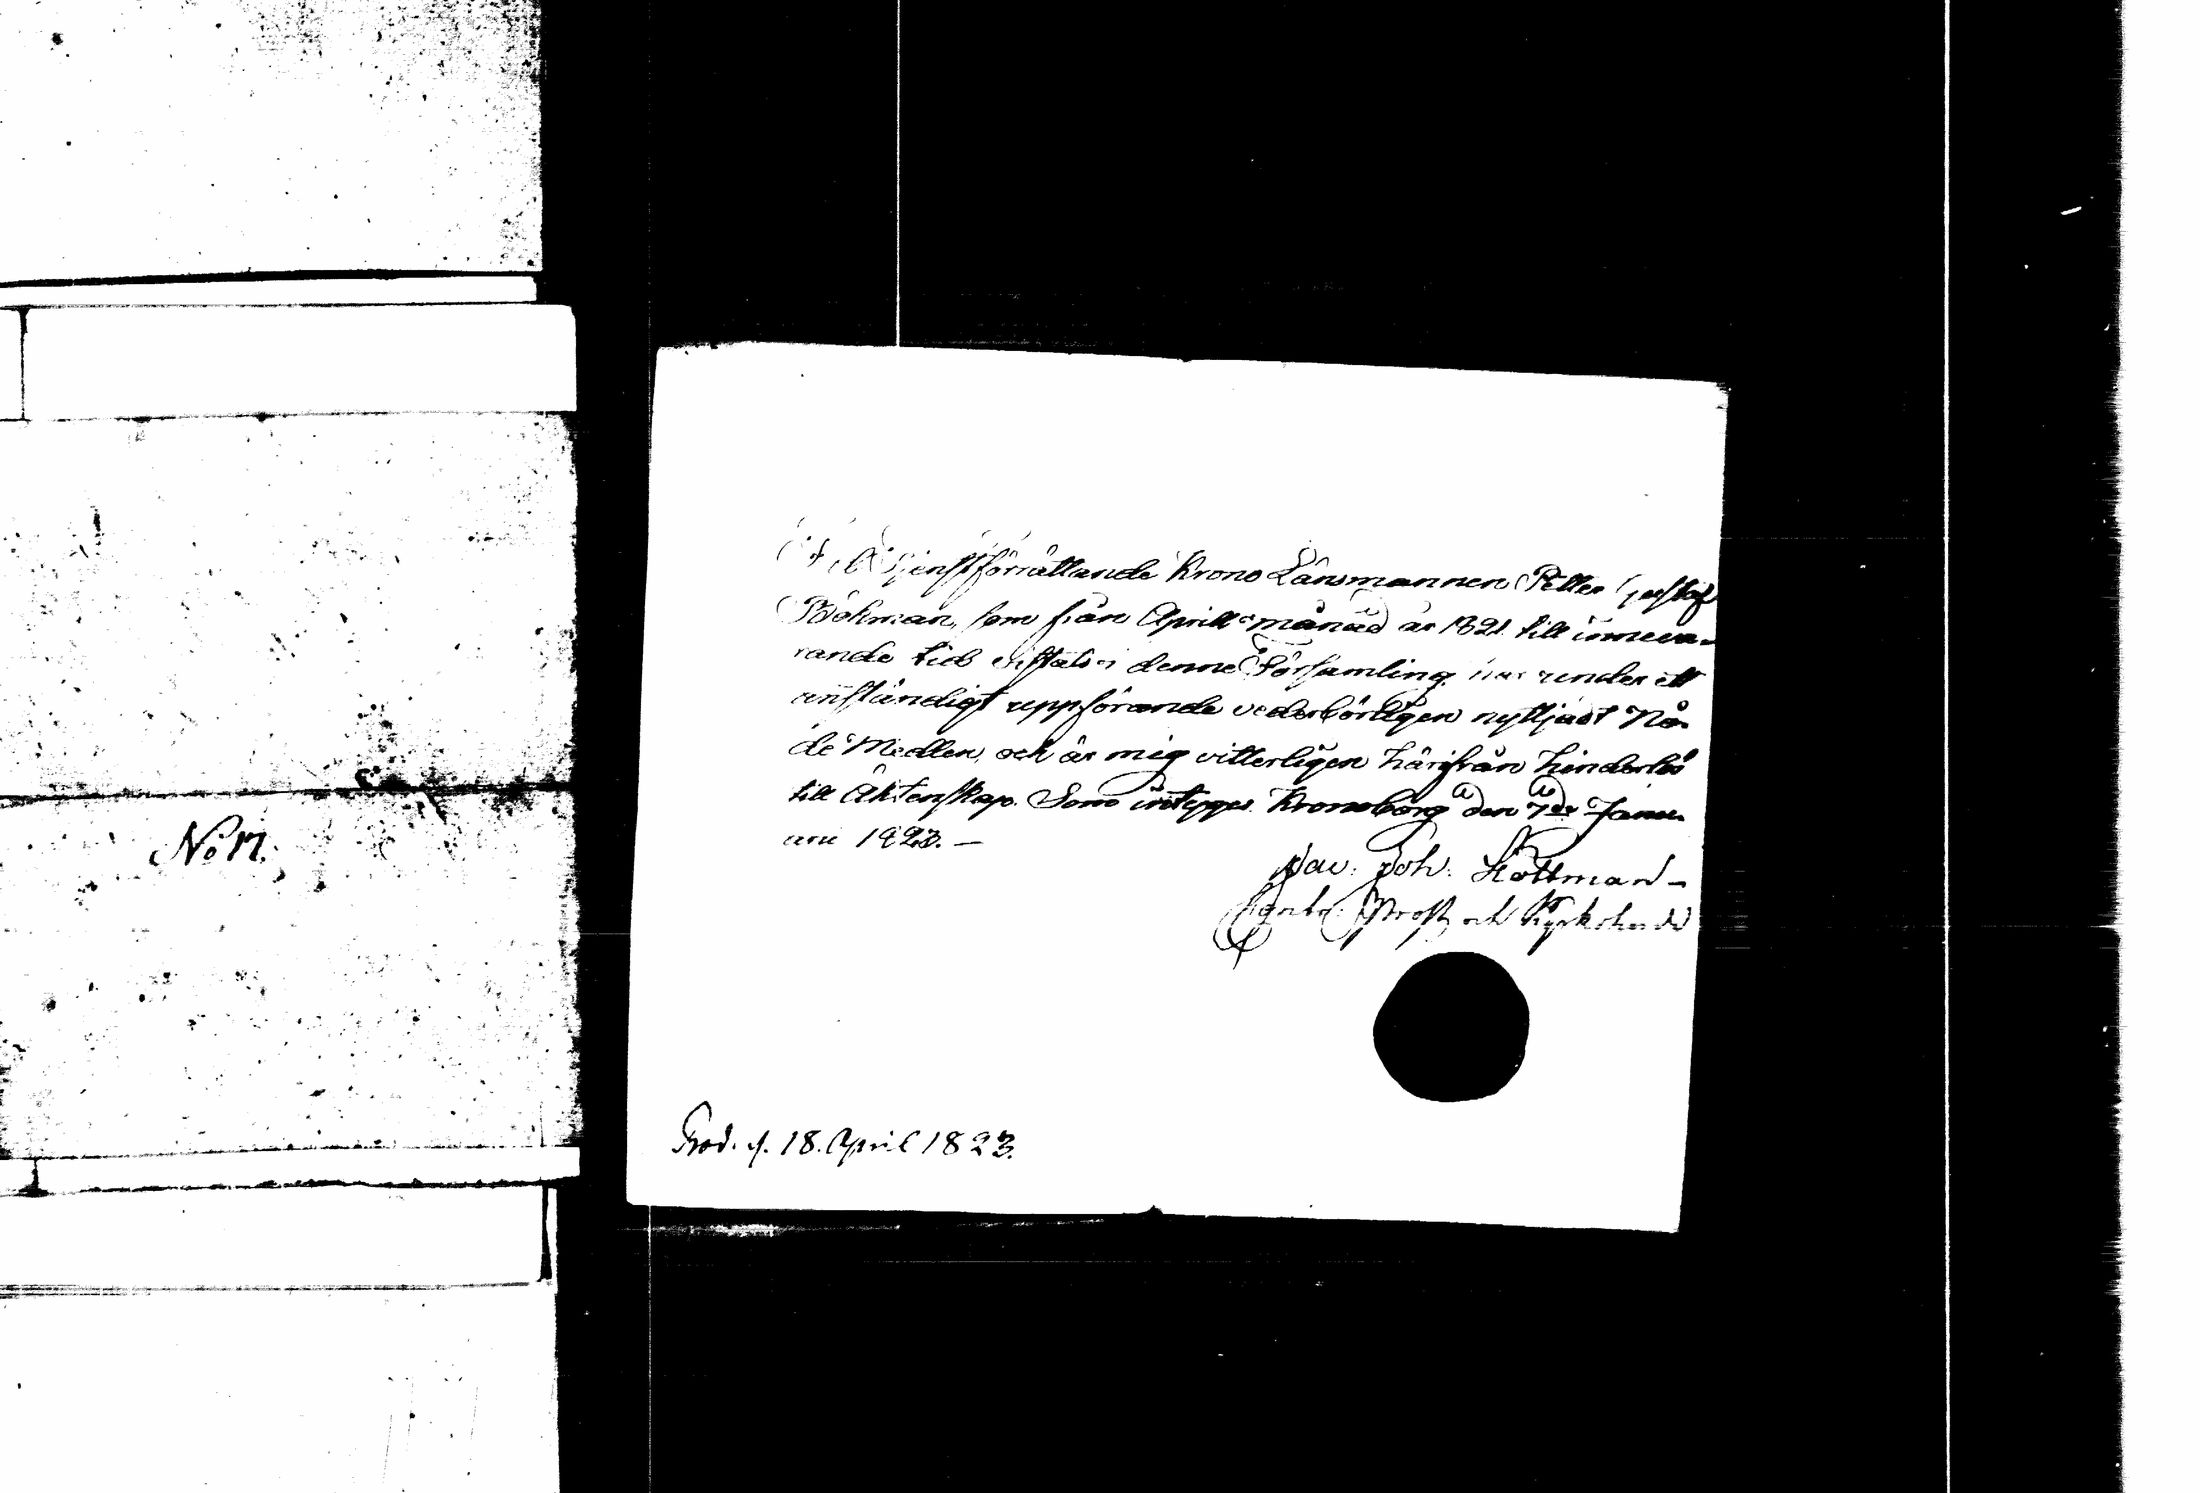 No 17.
Tjenstförrättande Krono Länsmannen Petter Gustaf
Bökman, som från Aprill månad år 1821 till inneva-
rande tid vistats i denne Församling, har under ett
anständigt uppförande vederbörligen nyttjadt Nå-
de Medlen, och är mig vitterligen härifrån hinderlös
till Äktenskap. Som intygas. Kronoborg den 7de Janu-
arii 1823. —
Joh: Hottman —
Prost och Kyrkoherde
Prod. d. 18. April 1823.